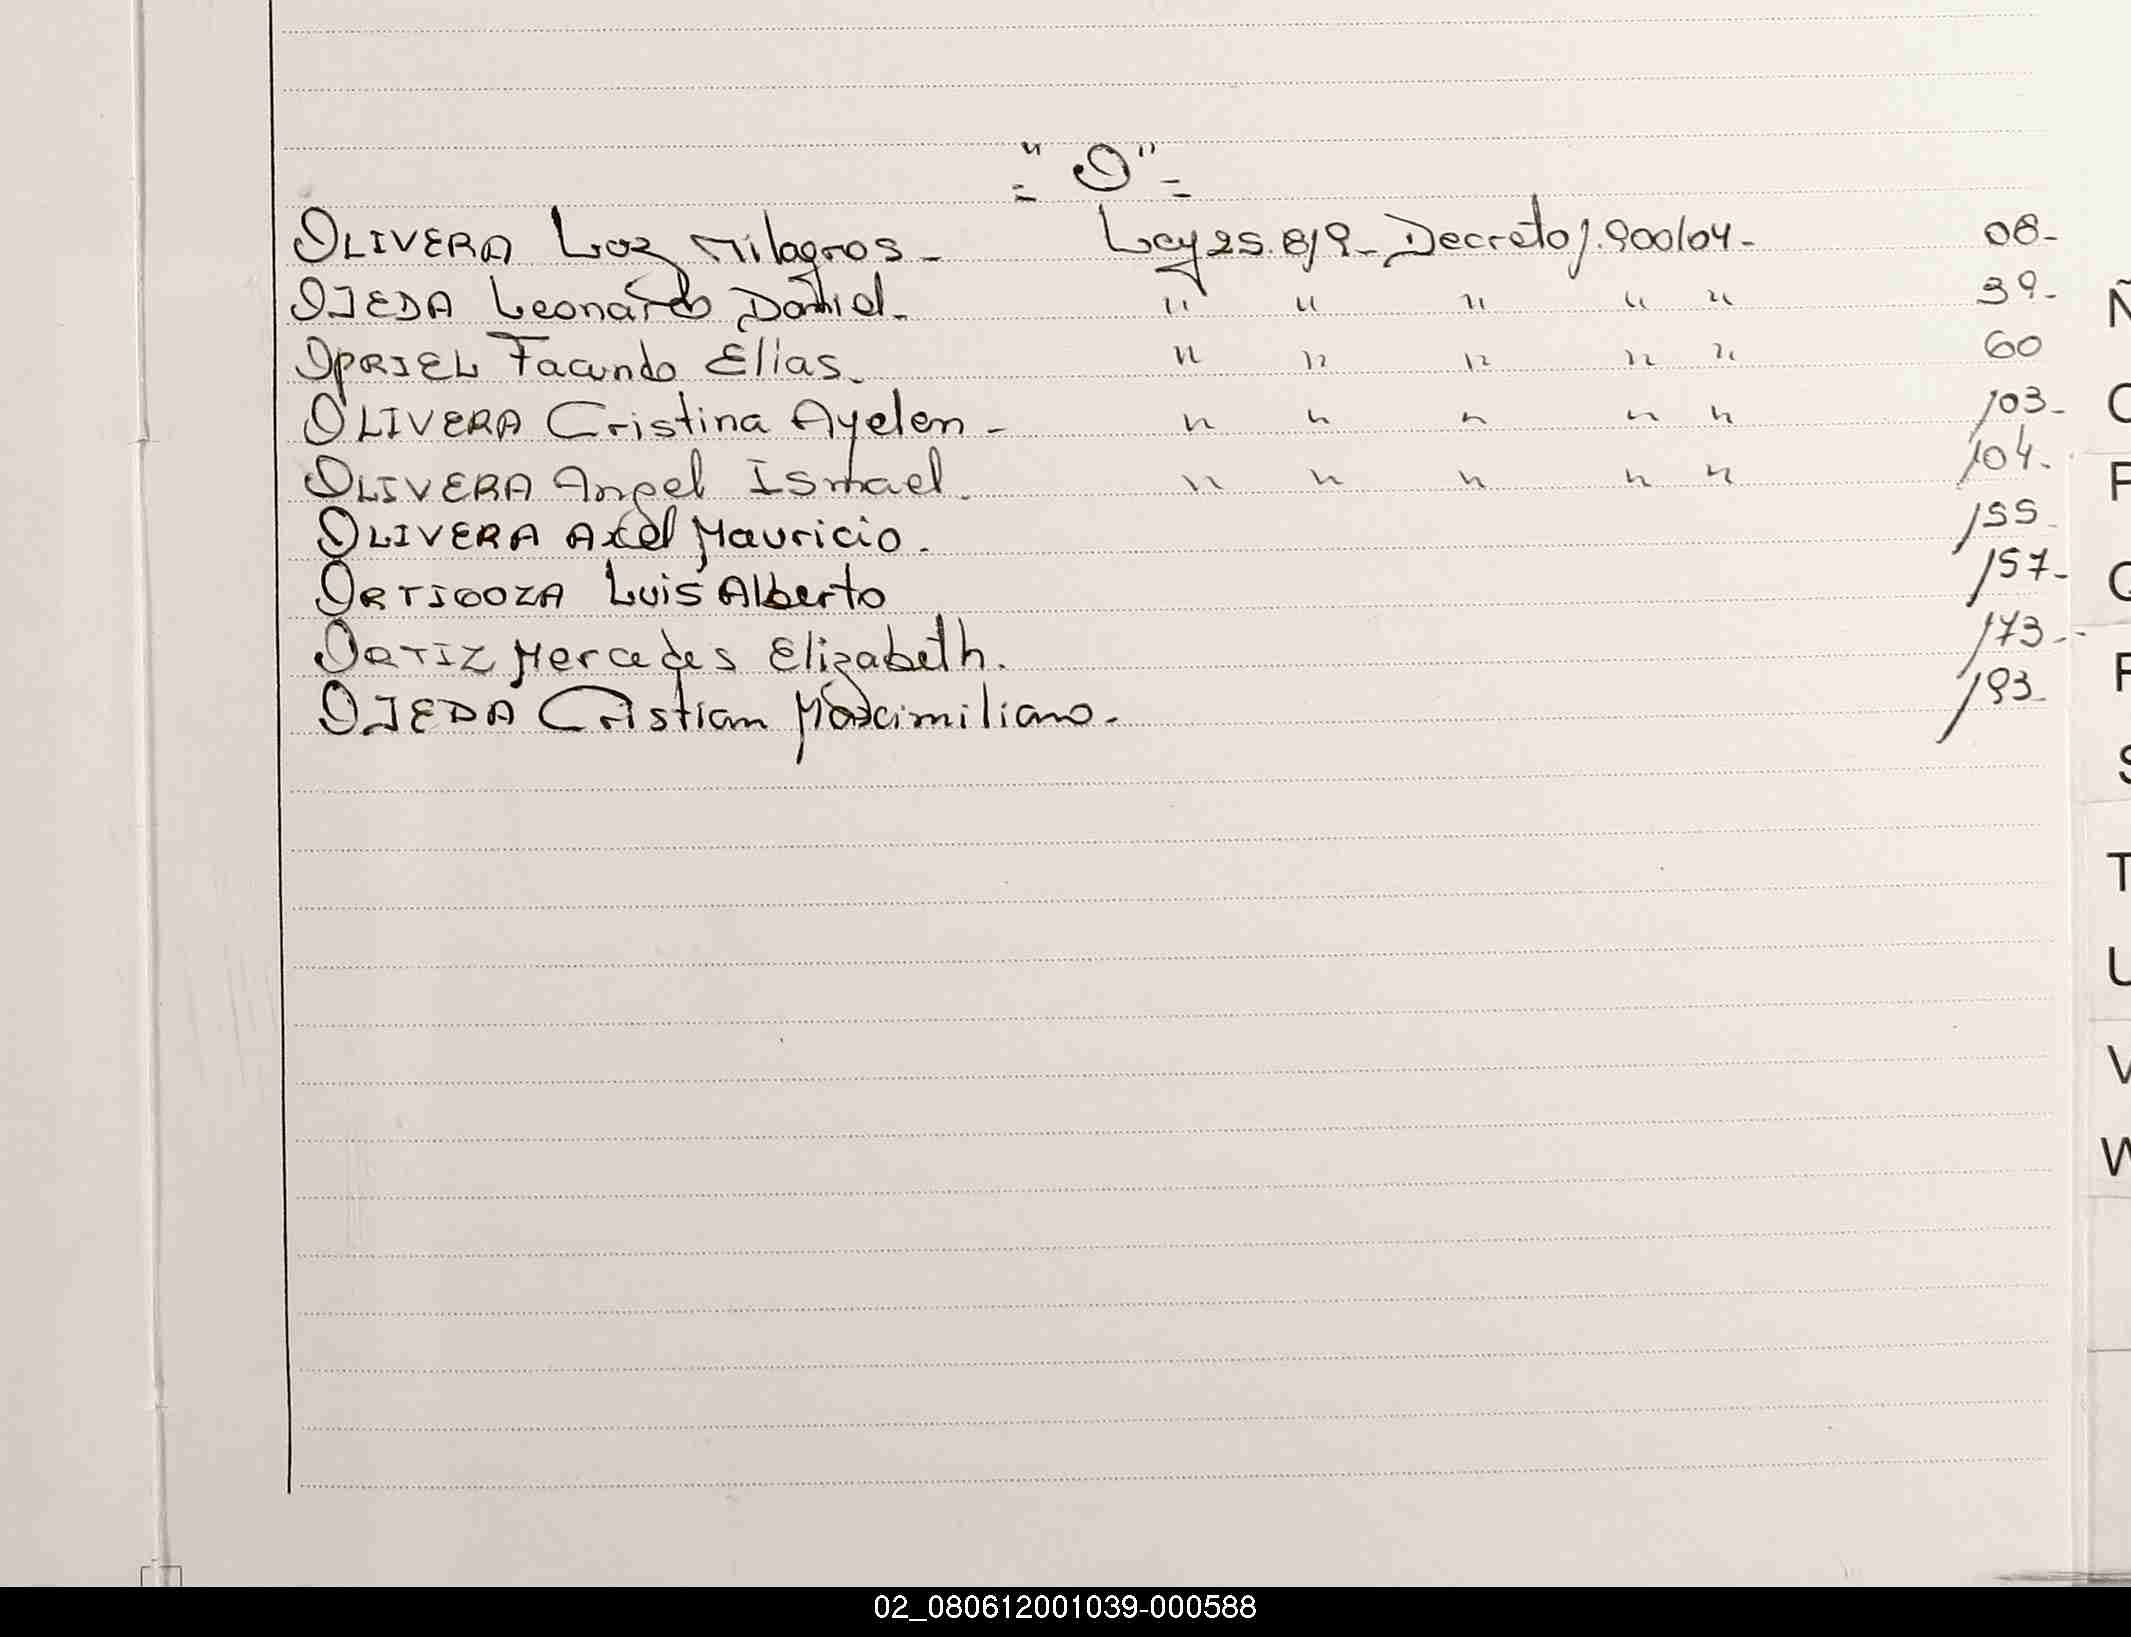 ="O"=
OLIVERA Luz Milagros - Ley 25.819 - Decreto 1.900/04 - 08-
OJEDA Leonardo Daniel. " " " " " 39-
OPRIEL Facundo Elias. " " " " " 60
OLIVERA Cristina Ayelen - " " " " " 103-
OLIVERA Angel Ismael. " " " " " 104.
OLIVERA Axel Mauricio. 155-
ORTIGOZA Luis Alberto 157-
ORTIZ Mercedes Elizabeth. 173--
OJEDA Cristian Maximiliano. 193-
Ñ
O
P
Q
R
S
T
U
V
W
02_080612001039-000588